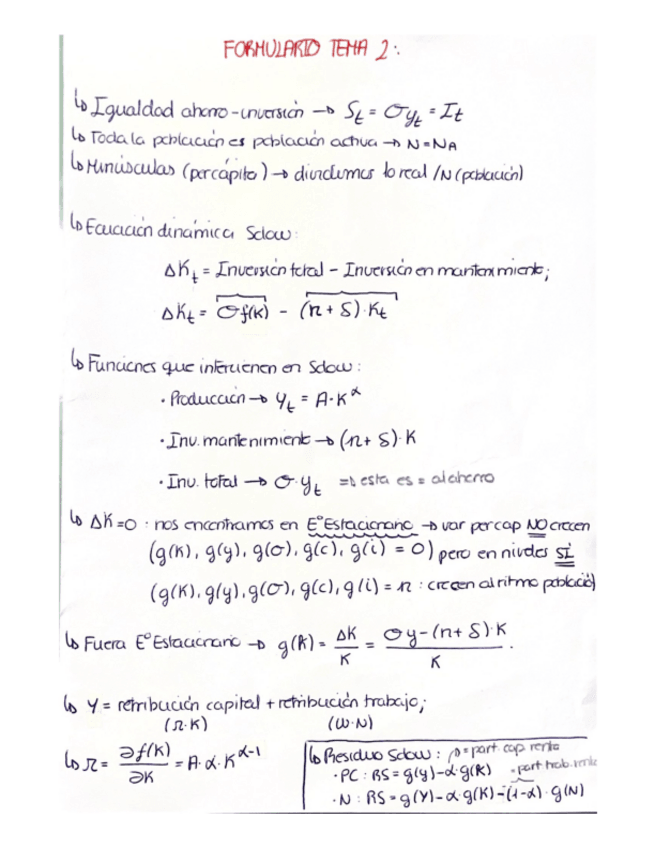 FORMULARIO TEMA 2:
↳ Igualdad ahorro-inversión → St = σyt = It
↳ Toda la población es población activa → N=NA
↳ Minúsculas (per cápita) → dividimos lo real /N (población)
↳ Ecuación dinámica Solow:
ΔKt = Inversión total - Inversión en mantenimiento;
ΔKt = σf(K) - (n + δ)·Kt
↳ Funciones que intervienen en Solow:
· Producción → yt = A·K^α
· Inv. mantenimiento → (n+ δ)·K
· Inv. total → σ·yt ⇒ esta es = al ahorro
↳ ΔK=0 : nos encontramos en Eº Estacionario → var per cap NO crecen
(g(K), g(y), g(σ), g(c), g(i) = 0) pero en niveles SÍ
(g(K), g(y), g(σ), g(c), g(i) = n : crecen al ritmo població)
↳ Fuera Eº Estacionario → g(k) = ΔK/K = σy-(n+δ)·K / K .
↳ Y = retribución capital + retribución trabajo;
(r·K) (w·N)
↳ r = ∂f(K)/∂K = A·α·K^α-1
↳ Residuo Solow: = part. cap renta
· PC : RS = g(y)-α·g(K) part. trab.
· N : RS = g(Y)-α·g(K)-(1-α)·g(N)